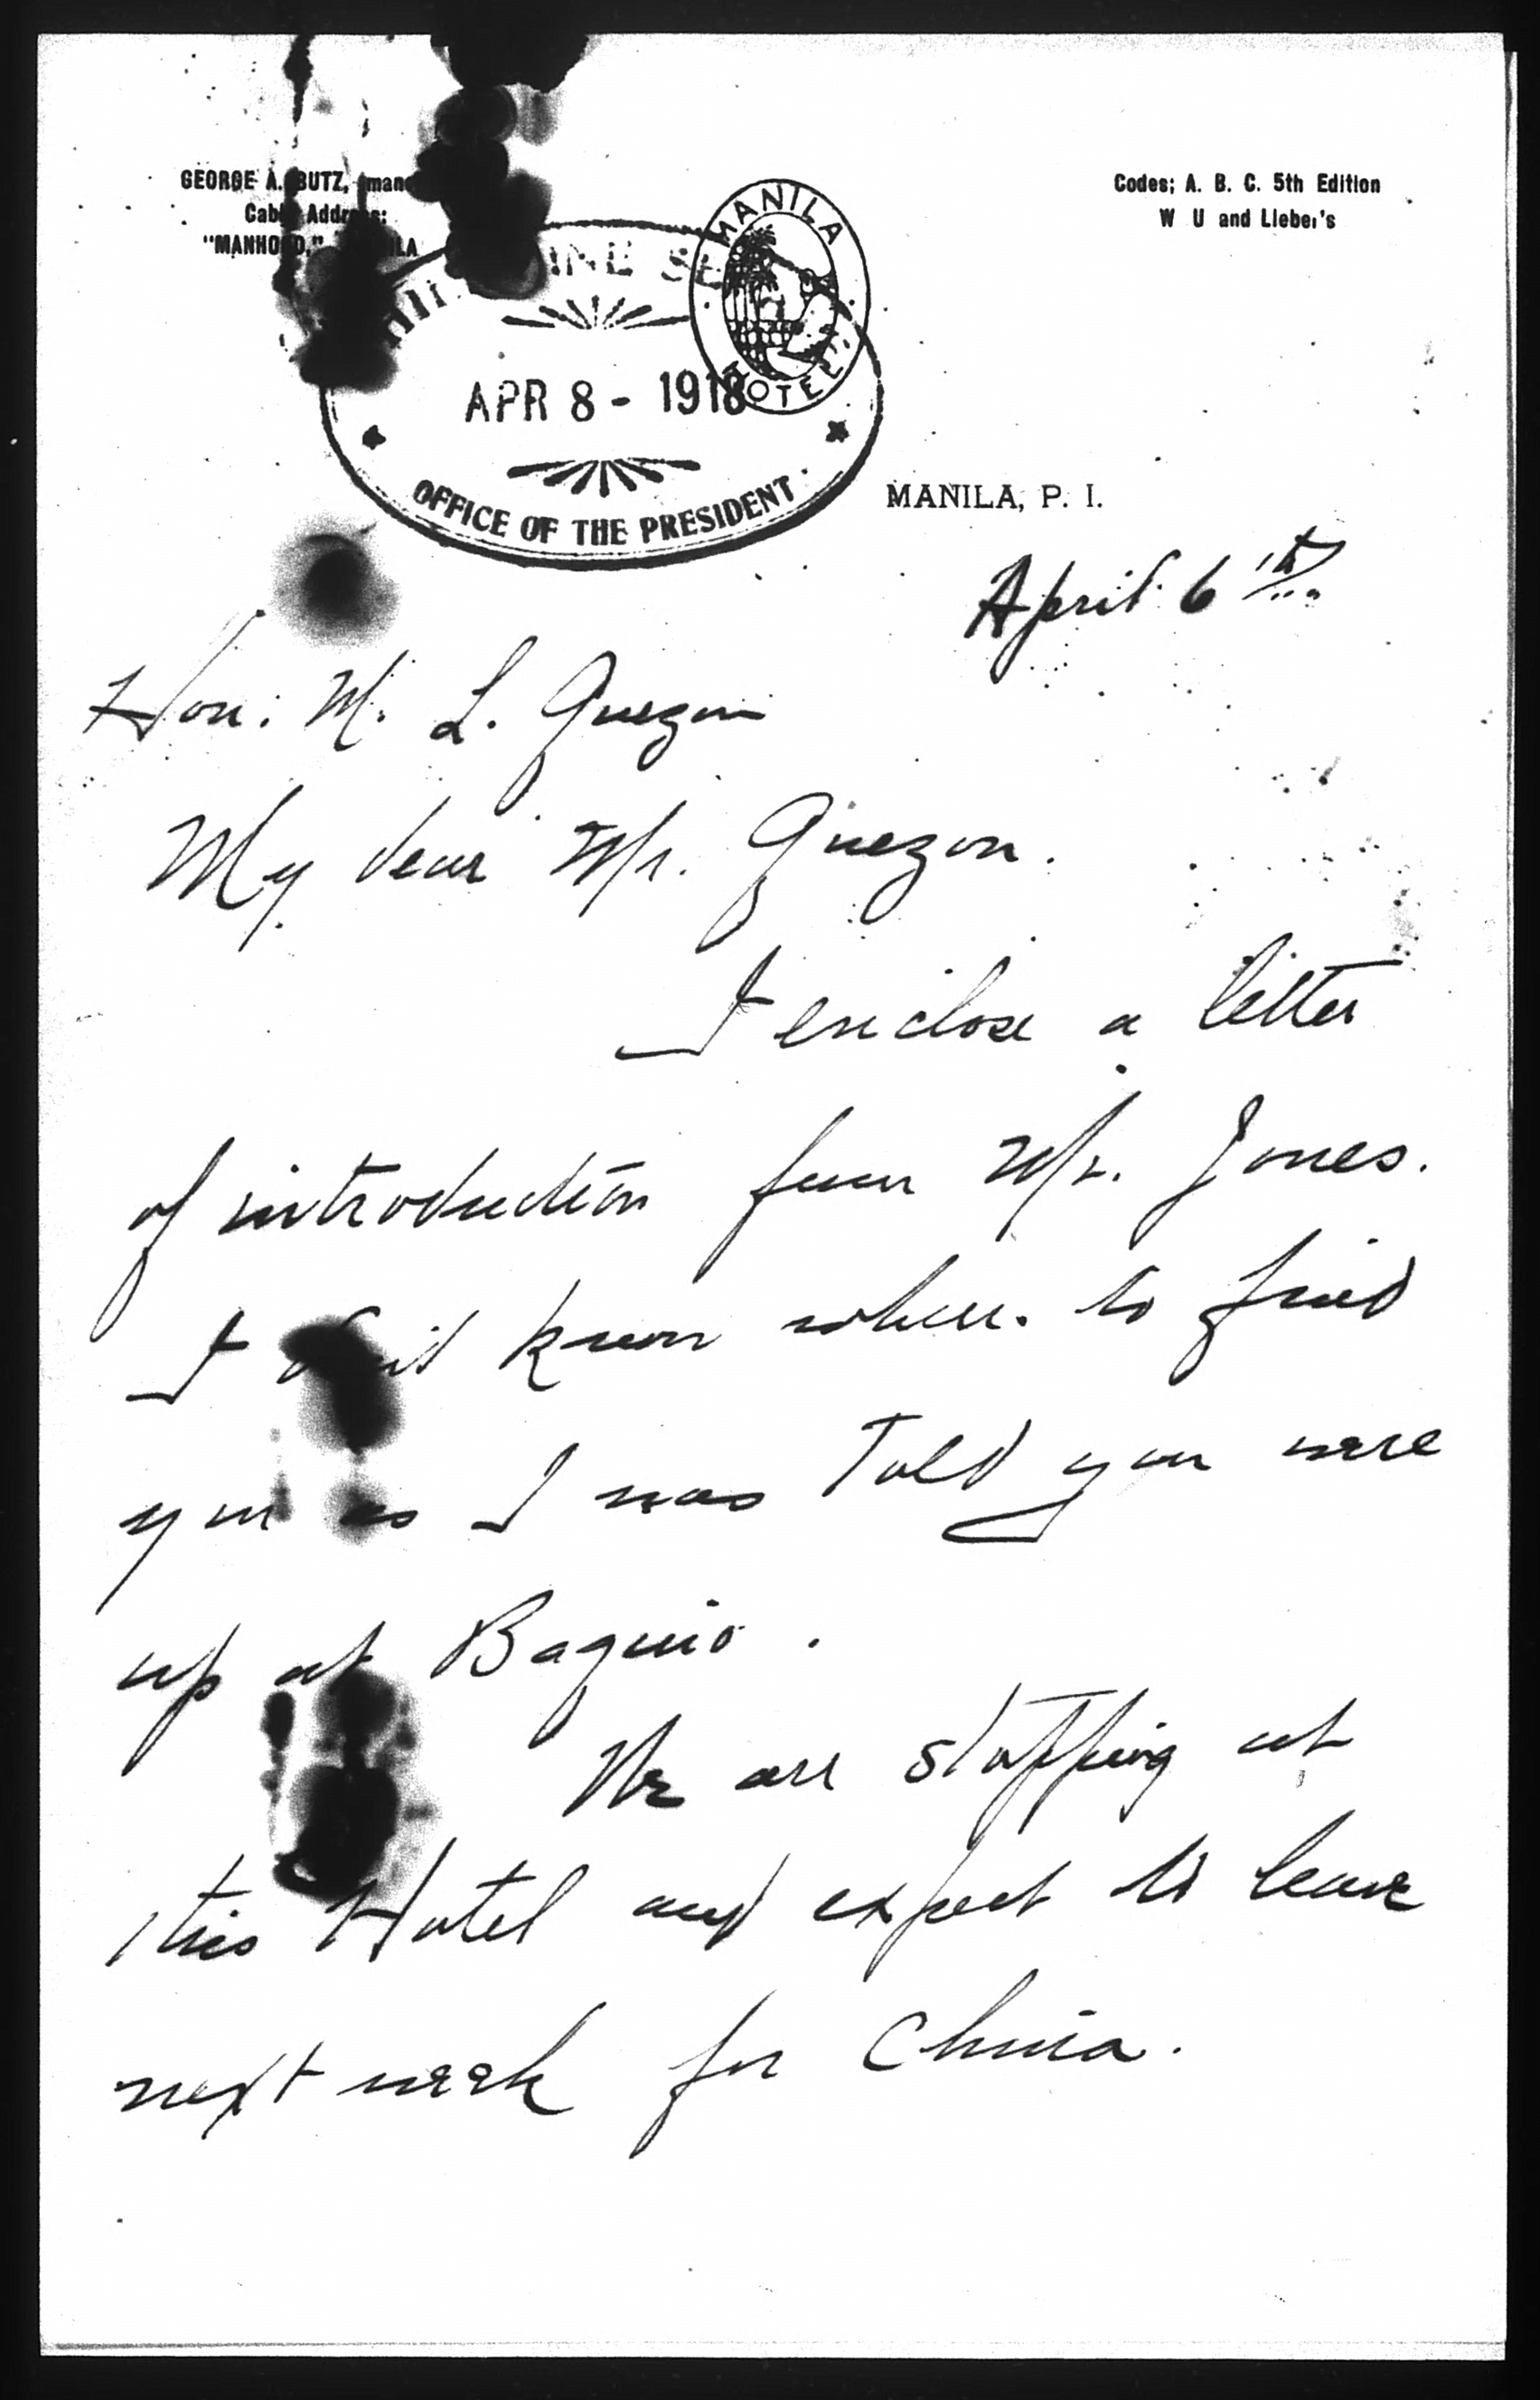 GEORGE A. BUTZ,
Cable Address:
"MANHOTO,"
Codes; A. B. C. 5th Edition
W U and Lieber's
MANILA
HOTEL
APR 8 - 1918
OFFICE OF THE PRESIDENT
MANILA, P. I.
April 6th
Hon. M. L. Quezon
My dear Mr. Quezon.
I enclose a letter
of introduction from Mr. Jones.
I didn't know where to find
you as I was told you were
up at Baguio.
We are stopping at
this Hotel and expect to leave
next week for China.